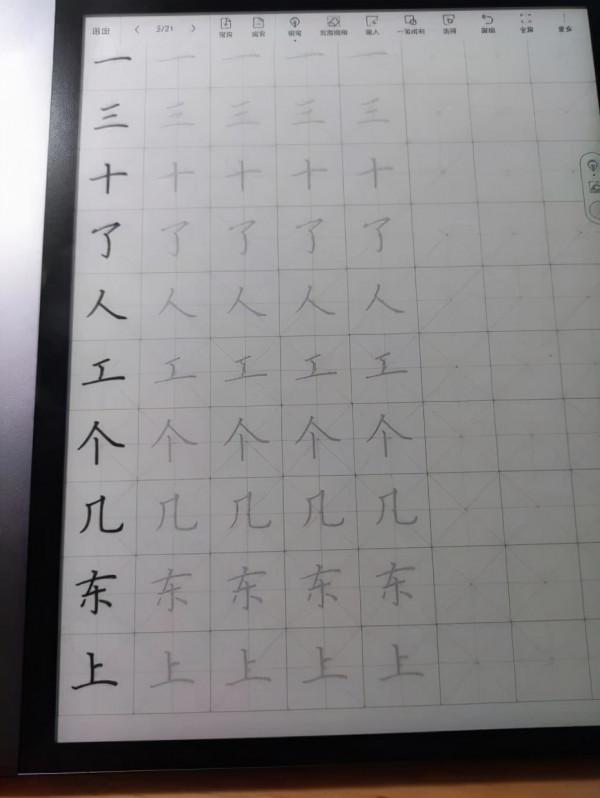 3/21
一 一 一 一 一
三 三 三 三 三
十 十 十 十 十
了 了 了 了 了
人 人 人 人 人
工 工 工 工 工
个 个 个 个 个
几 几 几 几 几
东 东 东 东 东
上 上 上 上 上